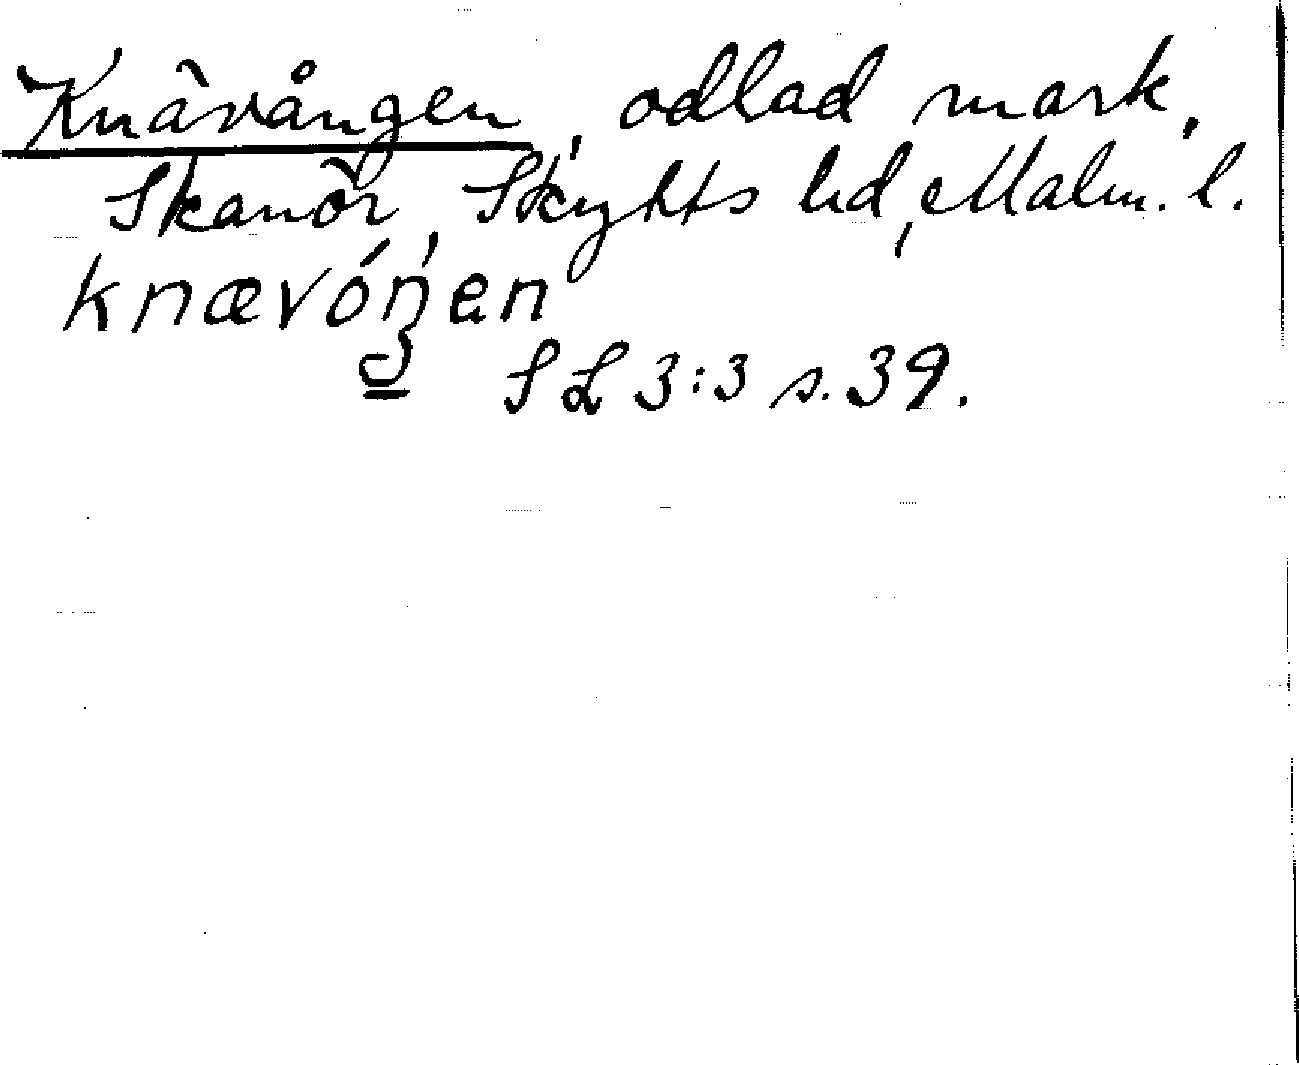 Knävången, odlad mark,
Skanör, Skytts hd, Malm. l.
knævóŋen
SL 3:3 s. 39.